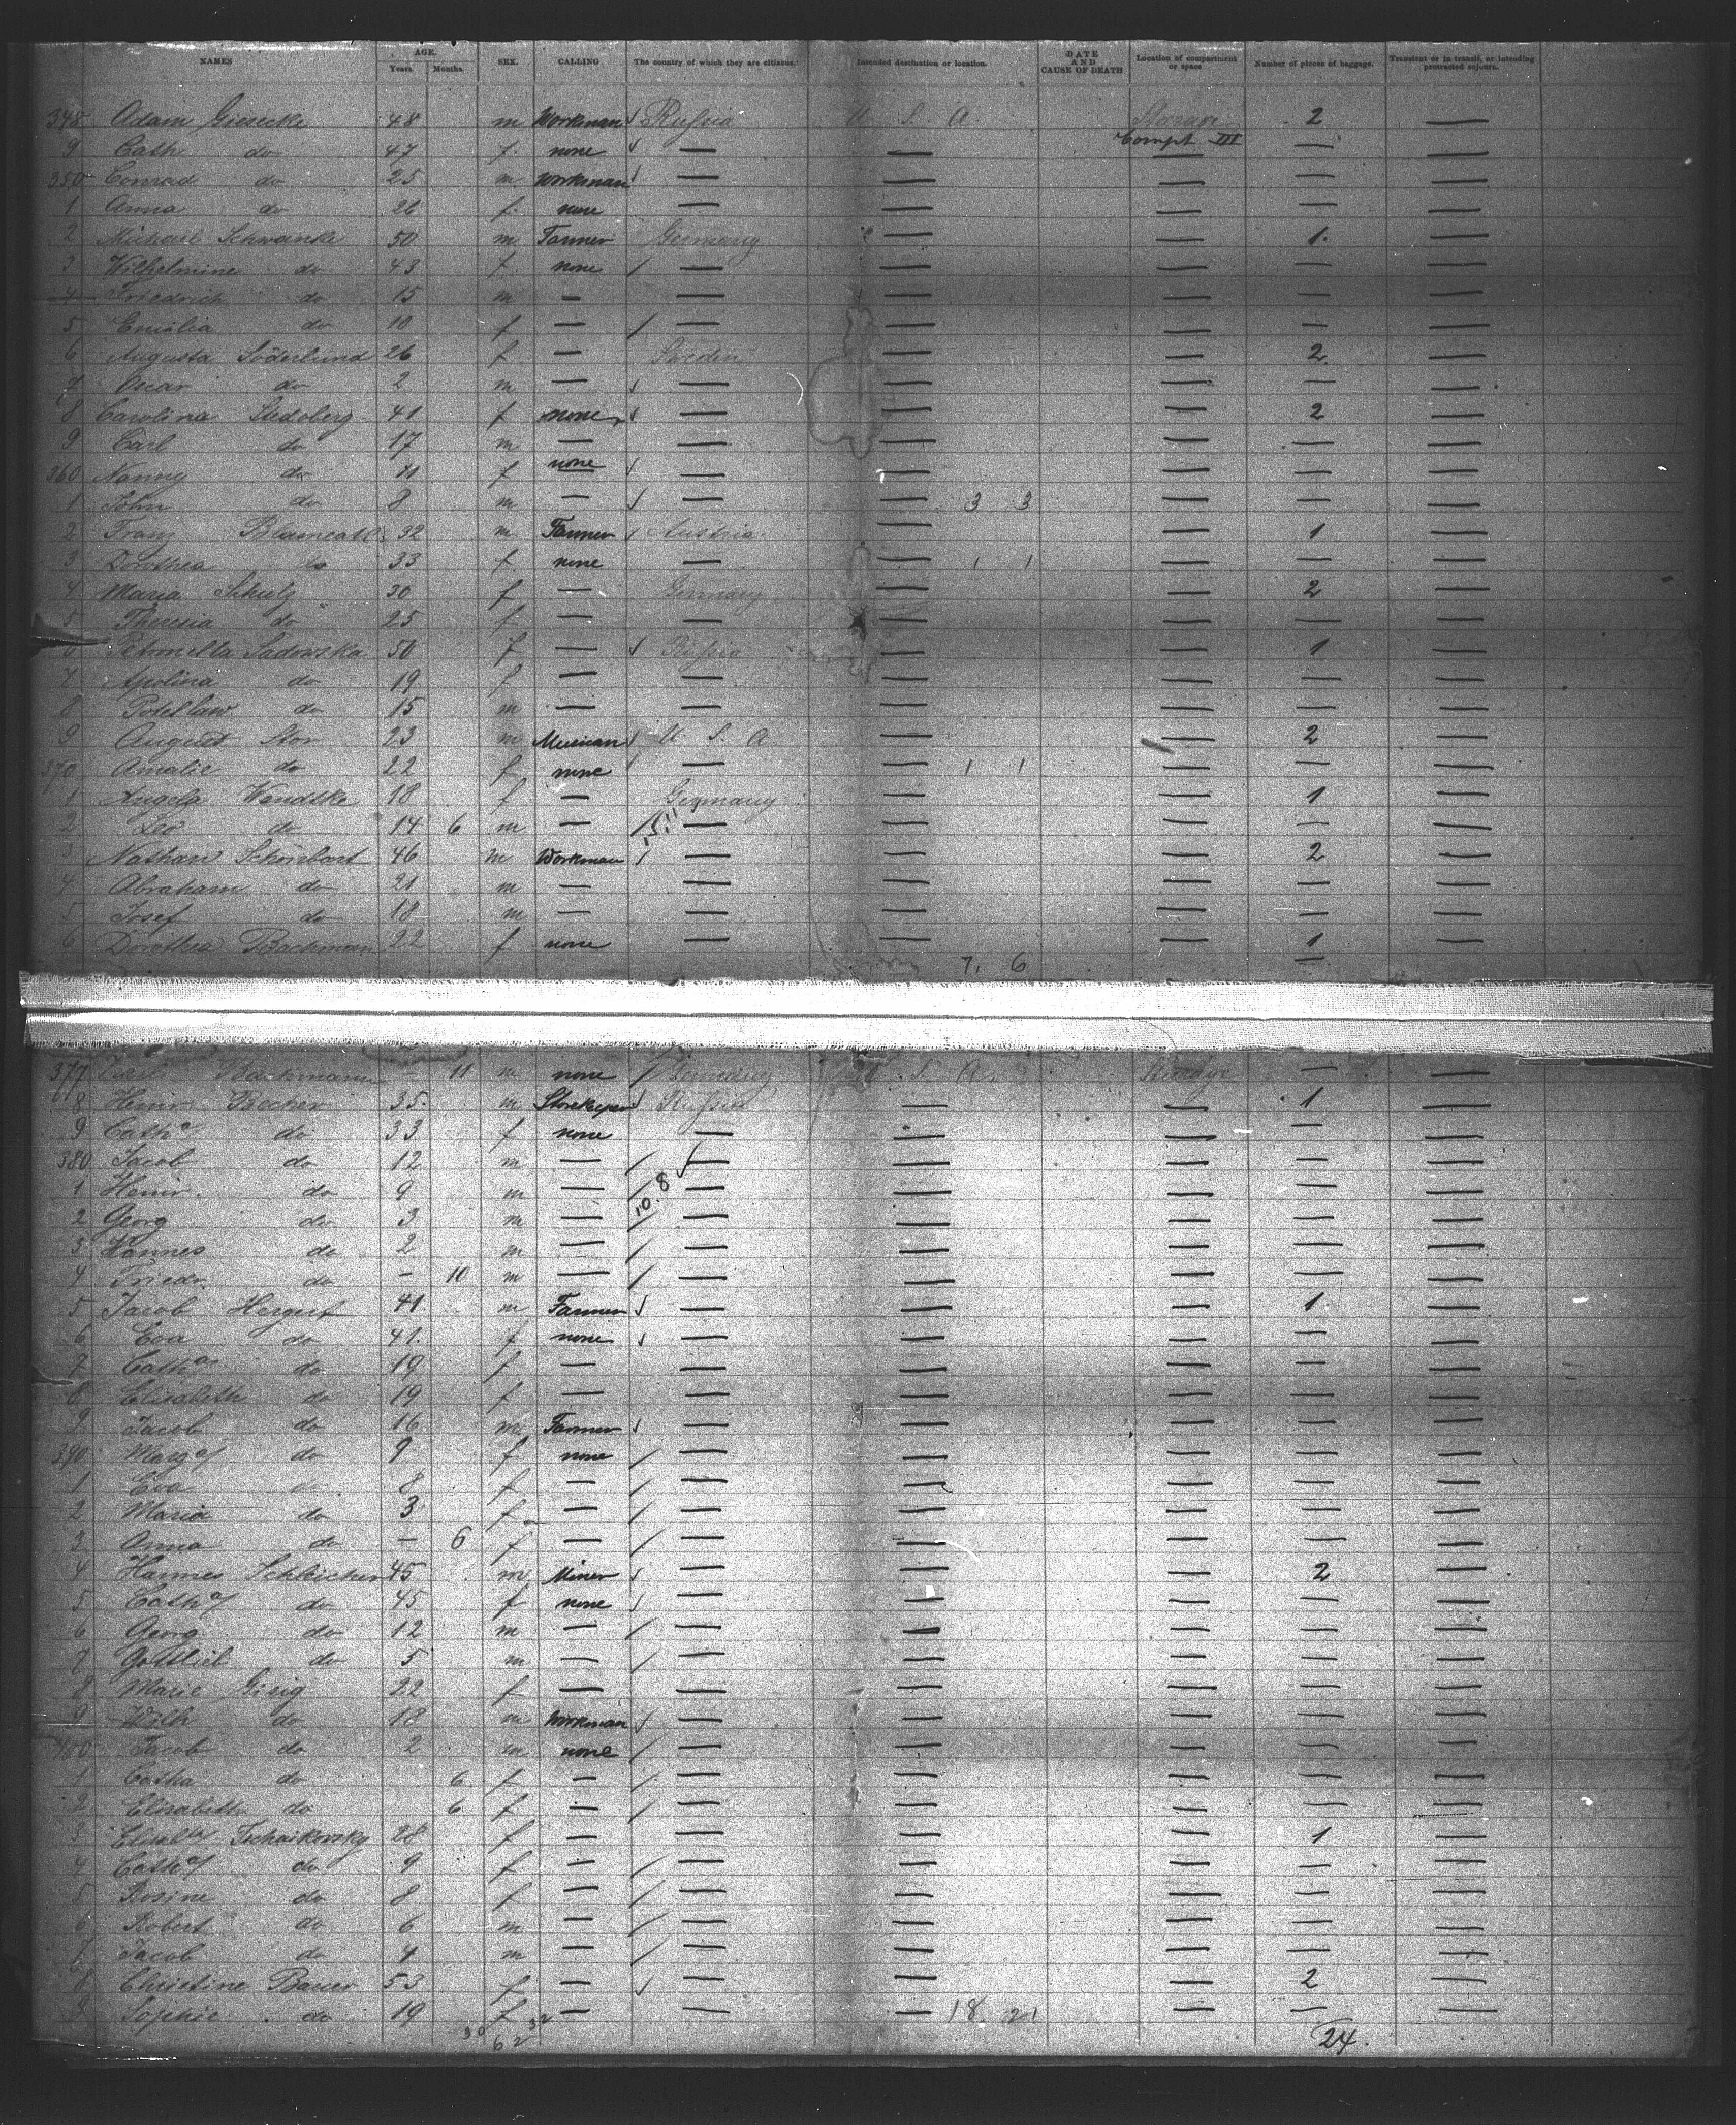 NAMES AGE. Years. Months. SEX. CALLING The country of which they are citizens. Intended destination or location. DATE AND CAUSE OF DEATH Location of compartment or space Number of pieces of baggage. Transient or in transit, or intending protracted sojourn.
348 Adam Giesecke 48 m Workman Russia U. S. A. 2 —
Compt III
9 Cath do 47 f. none — — — — —
350 Conrad do 25 m Workman — — — — —
1 Anna do 26 f. none — — — — —
2 Michael Schwanke 50 m Farmer Germany — — 1 —
3 Wilhelmine do 43 f. none — — — — —
4 Friedrich do 15 m — — — — — —
5 Emilia do 10 f — — — — — —
6 Augusta Söderlund 26 f — Sweden — — 2 —
7 Oscar do 2 m — — — — — —
8 Carolina 41 f none — — — 2 —
9 Carl do 17 m — — — — — —
360 Nanny do 11 f none — — — — —
1 John do 8 m — — — 3 3 — — —
2 Franz 32 m Farmer Austria — — 1 —
3 Dorothea do 33 f none — — 1 1 — — —
4 Maria Schulz 30 f — Germany — — 2 —
5 Theresia do 25 f — — — — — —
6 Petronella Sadowska 50 f — Russia — — 1 —
7 Apolina do 19 f — — — — — —
8 do 15 m — — — — — —
9 August Stor 23 m Musician U. S. A — — 2 —
370 Amalie do 22 f none — — 1 1 — — —
1 Angela Wendtke 18 f — Germany — — 1 —
2 Leo do 14 6 m — — — — — —
3 Nathan Schönbart 46 m Workman — — — 2 —
4 Abraham do 21 m — — — — — —
5 Josef do 18 m — — — — — —
6 Dorothea Bachmann 22 f none — — — 1 —
7. 6 —
377 Bachmann — 11 m none Germany U. S. A. Steerage — —
8 Heinr Becher 35 m Storekeeper Russia — — 1 —
9 Catha do 33 f none — — — — —
380 Jacob do 12 m — — — — — —
1 Heinr. do 9 m — 10.8 — — — — —
2 Georg do 3 m — — — — — —
3 Hannes do 2 m — — — — — —
4 Friedr. do — 10 m — — — — — —
5 Jacob Hergert 41 m Farmer — — — 1 —
6 Eva do 41. f none — — — — —
7 Catha do 19 f — — — — — —
8 Elisabeth do 19 f — — — — — —
9 Jacob do 16 m Farmer — — — — —
390 Marga do 9 f none — — — — —
1 Eva do 8 f — — — — — —
2 Maria do 3 f — — — — — —
3 Anna do — 6 f — — — — — —
4 Hannes Schleicher 45 m Miner — — — 2 —
5 Catha do 45 f none — — — — —
6 Georg do 12 m — — — — — —
7 Gottlieb do 5 m — — — — — —
8 Marie Giesig 22 f — — — — — —
9 Wilh do 18 m Workman — — — — —
400 Jacob do 2 m none — — — — —
1 Catha do 6 f — — — — — —
2 Elisabeth do 6 f — — — — — —
3 Tschaikovsky 28 f — — — — 1 —
4 Catha do 9 f — — — — — —
5 Rosine do 8 f — — — — — —
6 Robert do 6 m — — — — — —
7 Jacob do 4 m — — — — — —
8 Christine Bauer 53 f — — — — 2 —
9 Sophie do 19 f — — — 18 21 — — —
30 32
62 24.